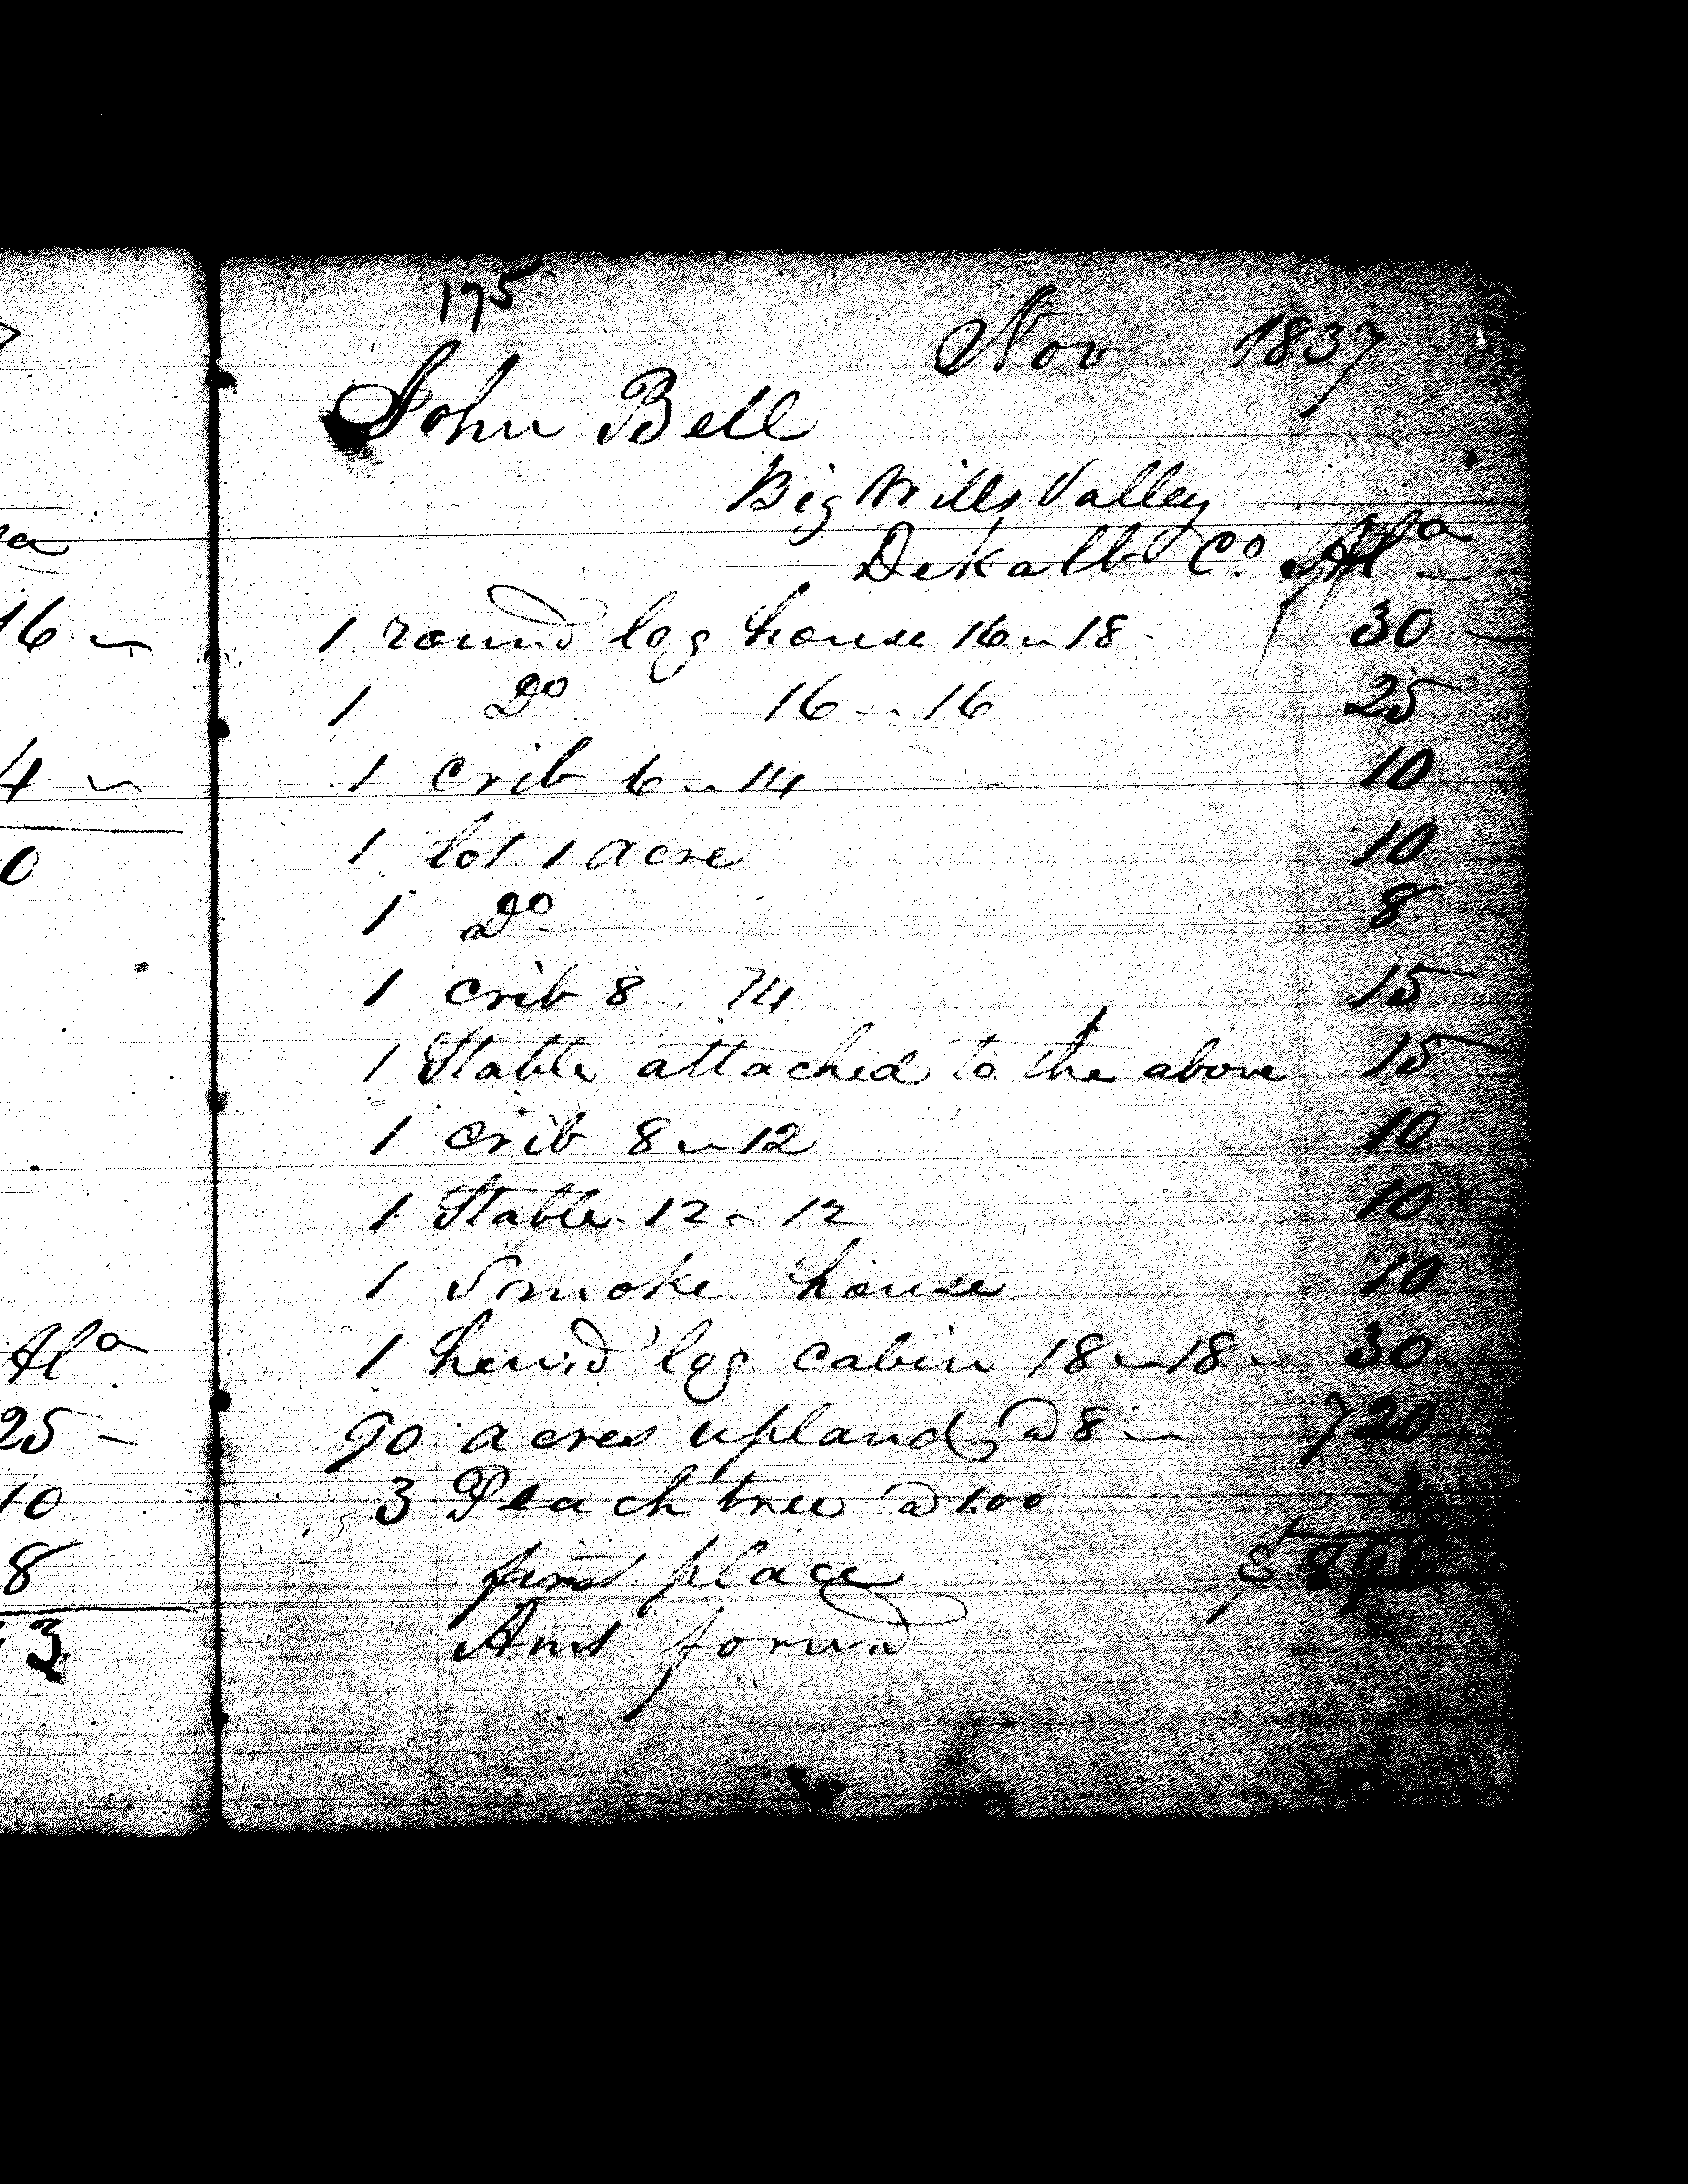 a
16 ~
4 ~
0
Ala
25 -
10
8
3
175
Nov 1837
John Bell
Big Wills Valley
DeKalb Co. Ala
1 round log house 16 ~ 18 30
1 Do 16 ~ 16 25
1 crib 6 ~ 14 10
1 lot 1 acre 10
1 Do 8
1 crib 8 14 15
1 Stable attached to the above 15
1 crib 8 ~ 12 10
1 Stable 12 ~ 12 10
1 Smoke house 10
1 hew.d log cabin 18 ~ 18 ~ 30
90 acres upland @ 8 ~ 720
3 Peach tree @ 1.00 3
first place $ 896
Amt forwd